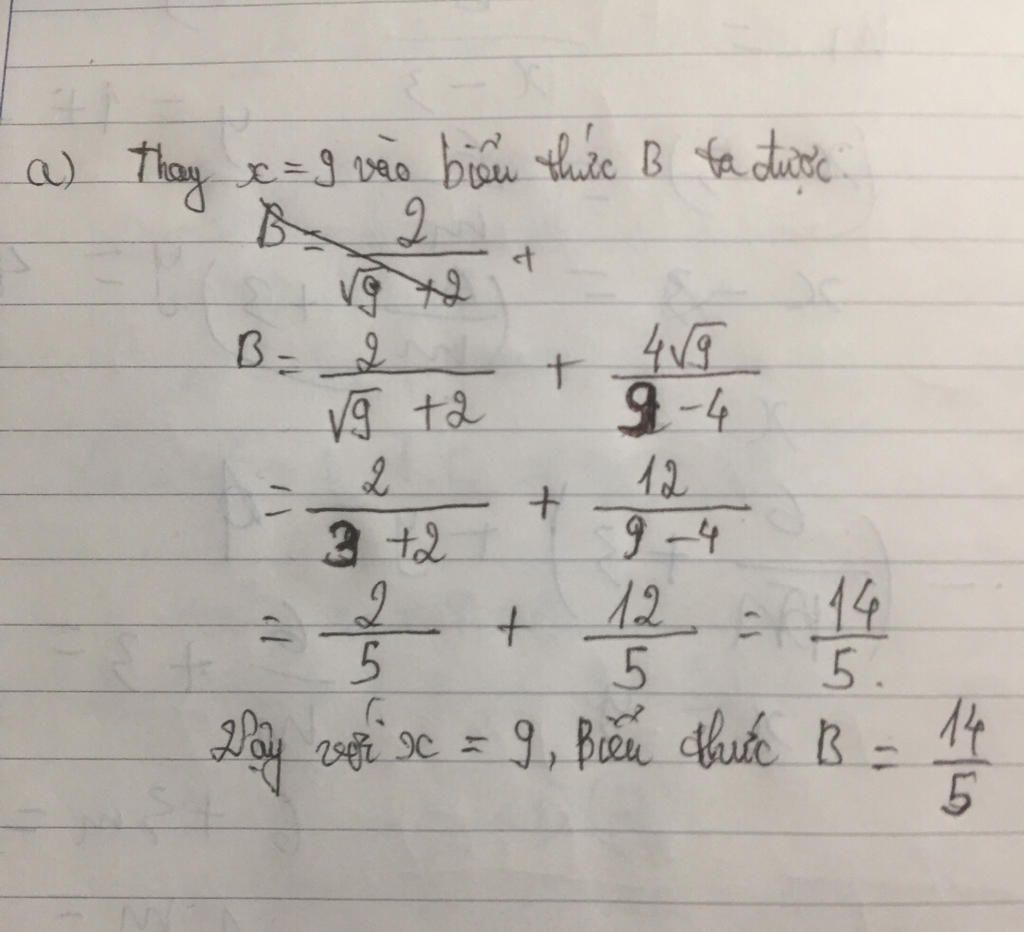 a) Thay x = 9 vào biểu thức B ta được:
B = 2/(√9 + 2) +
B = 2/(√9 + 2) + 4√9/(9 - 4)
= 2/(3 + 2) + 12/(9 - 4)
= 2/5 + 12/5 = 14/5.
Vậy với x = 9, Biểu thức B = 14/5